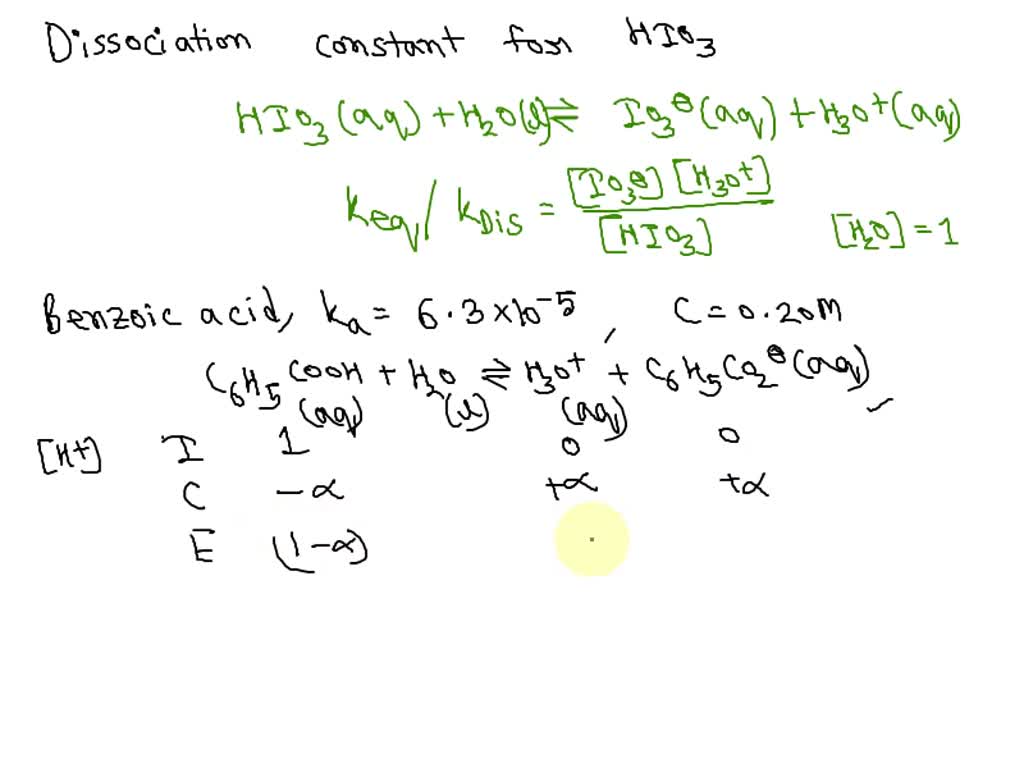 Dissociation constant for HIO₃
HIO₃(aq) + H₂O(l) ⇌ IO₃⊖(aq) + H₃O⁺(aq)
Keq / KDis = [IO₃⊖] [H₃O⁺] / [HIO₃] [H₂O] = 1
Benzoic acid, Ka = 6.3×10⁻⁵, C = 0.20M
C₆H₅COOH + H₂O ⇌ H₃O⁺ + C₆H₅CO₂⊖(aq)
(aq) (l) (aq)
[H+] I 1 0 0
C -α +α +α
E (1-α)